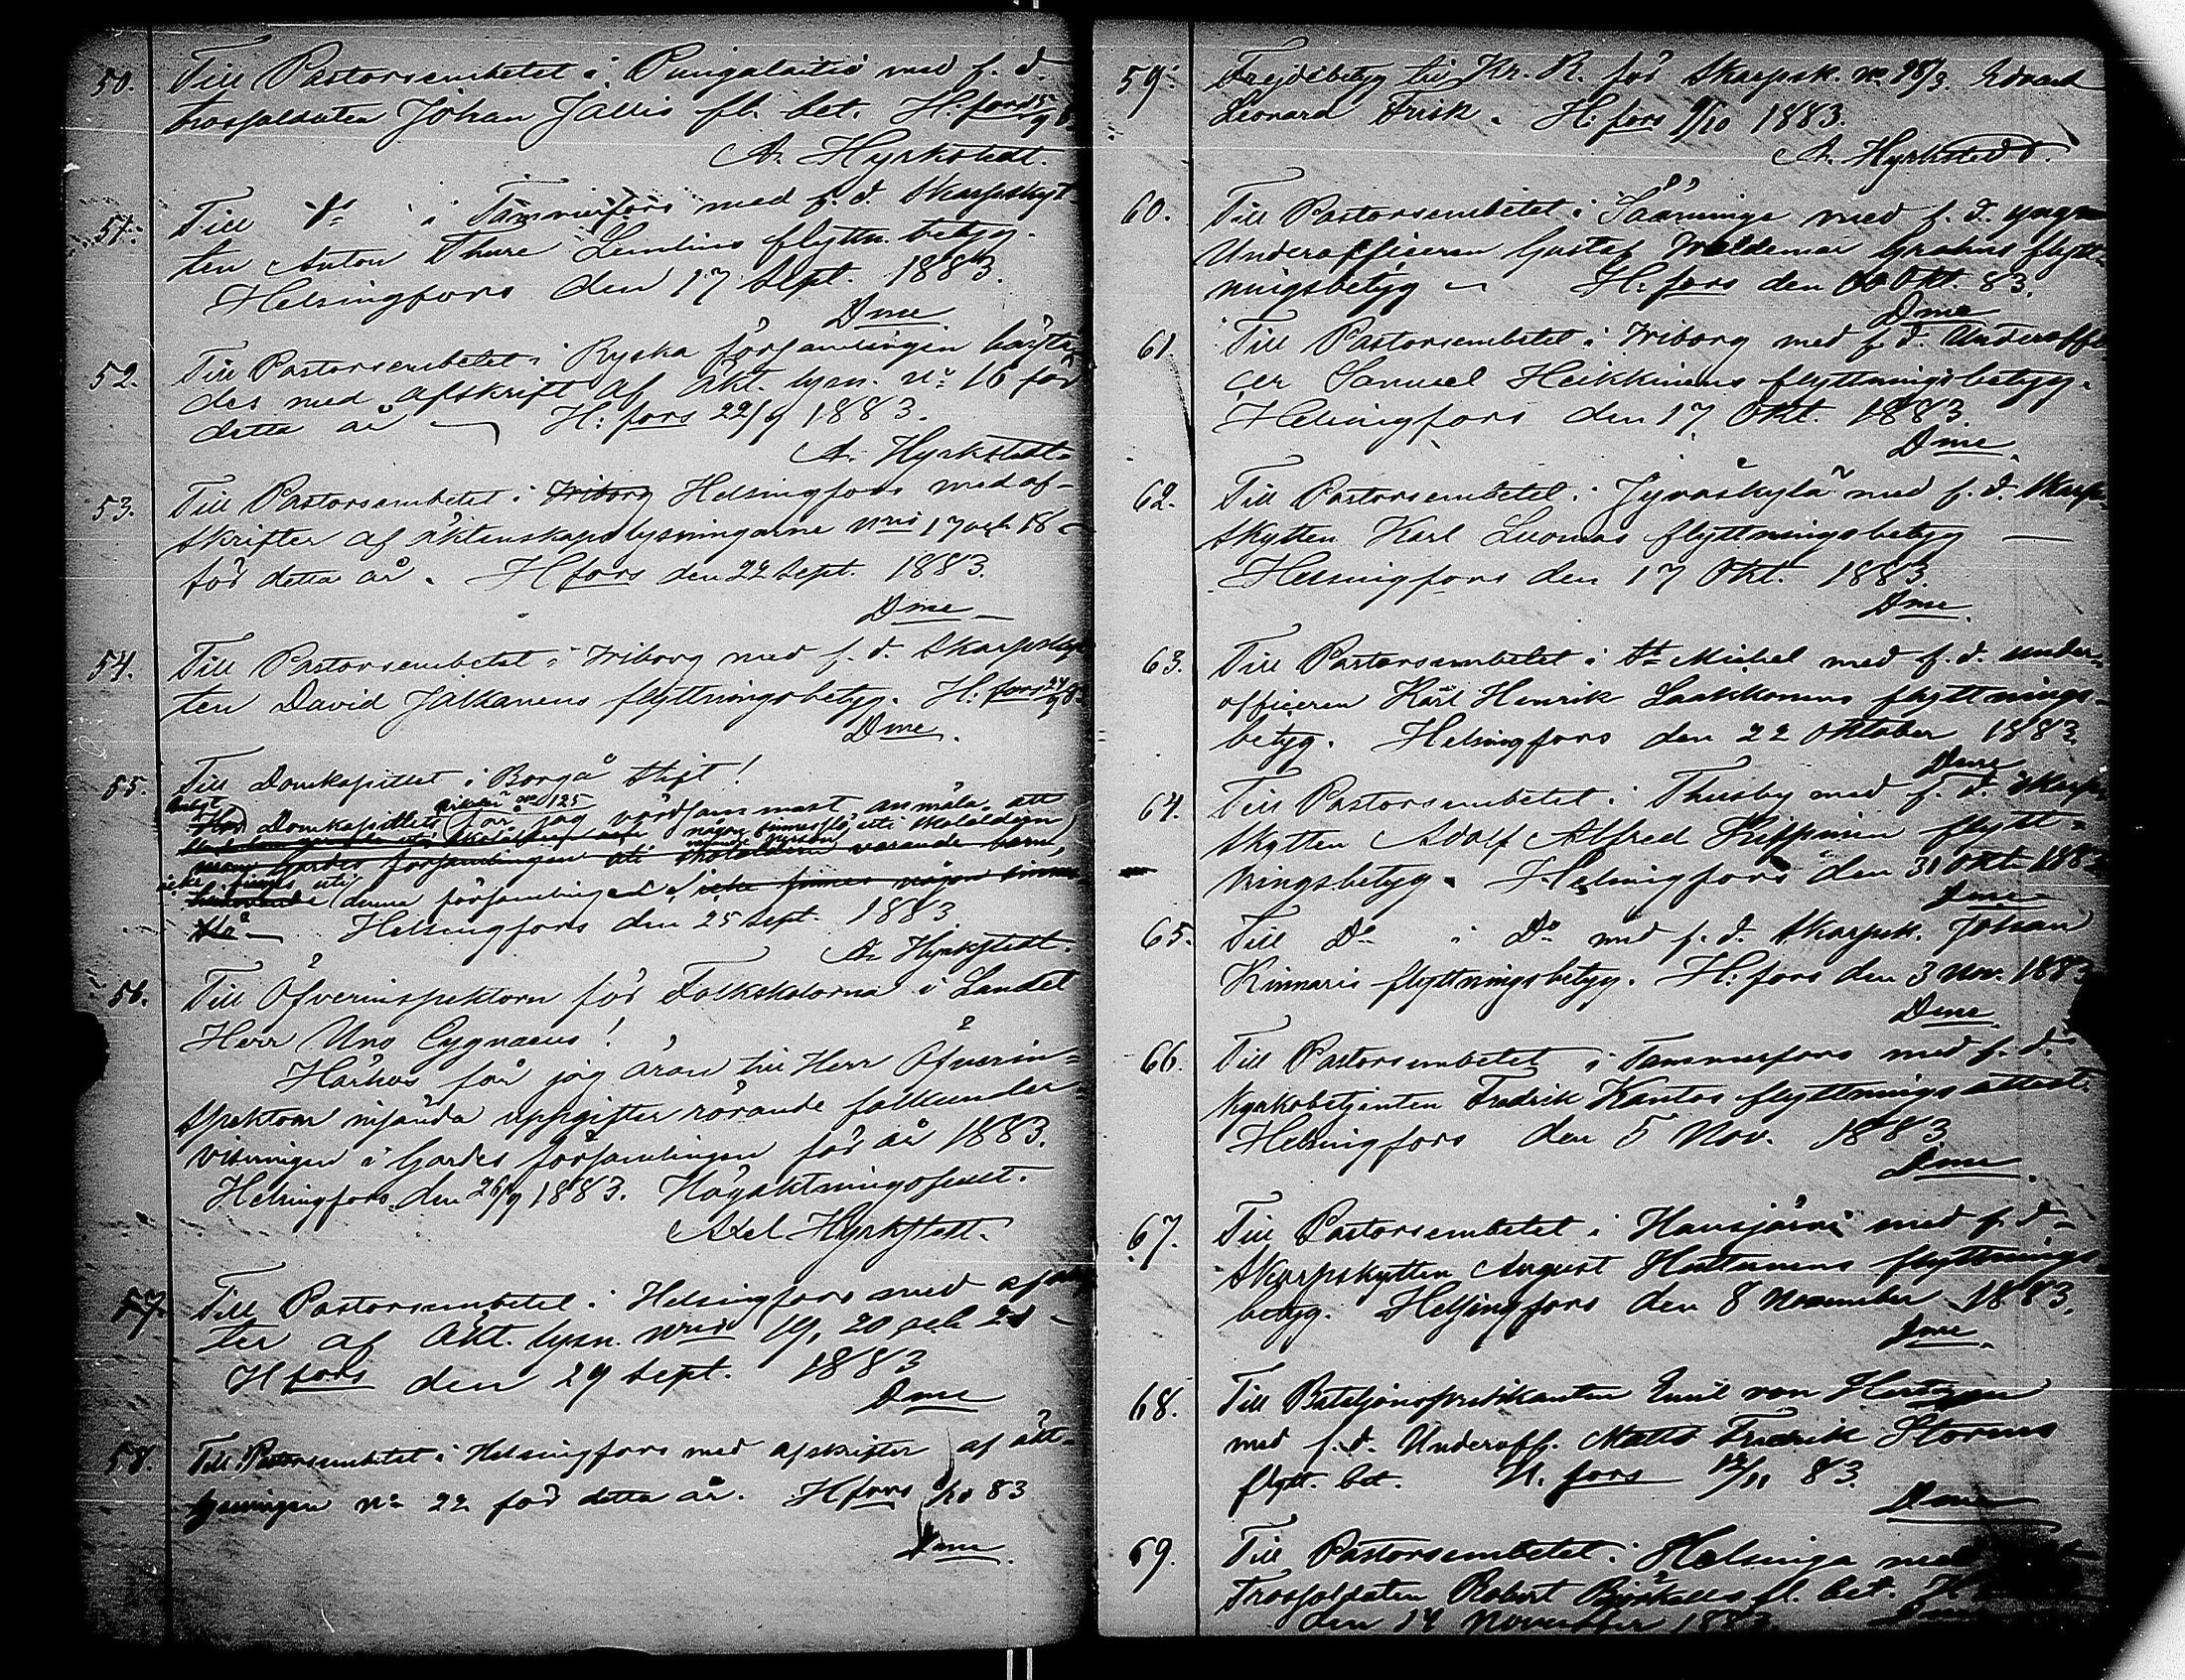 50. Till Pastorsembetet i Pungalaitio med f. d.
trossoldaten Johan Jallis fl. bet. H:fors
A. Hyrkstedt.
51. Till Do i Tammerfors med f. d. Skarpskyt-
ten Anton Thure Lemlins flyttn. betyg.
Helsingfors den 17 Sept. 1883.
Dme
52. Till Pastorsembetet i Ryska församlingen härstä-
des med afskrift af äkt. lysn. No 16 för
detta år — H:fors 22/9 1883.
A. Hyrkstedt.
53. Till Pastorsembetet i Wiborg Helsingfors med af-
skrifter af äktenskapslysningarne nris 17 och 18
för detta år. Hfors den 22 Sept. 1883.
Dme —
54. Till Pastorsembetet i Wiborg med f. d. Skarpskyt-
ten David Jalkanens flyttningsbetyg. H:fors
Dme.
55. Till Domkapitlet i Borgå Stift!
Domkapitlets cirkulär no 125 får jag vördsammast anmäla, att
någon sinnesslö, uti skolåldern
varande person
Gardes församlingen uti skolåldern varande barn,
icke finnes uti
denna församling icke finnes någon sinnes-
slö — Helsingfors den 25 Sept. 1883
A. Hyrkstedt.
56. Till Öfverinspektorn för Folkskolorna i Landet
Herr Uno Cygnaeus!
Härhos får jag äran till Herr Öfverin-
spektorn insända uppgifter rörande folkunder-
visningen i Gardes församlingen för år 1883.
Helsingfors den 26/9 1883. Högaktningsfullt.
Axel Hyrkstedt.
57. Till Pastorsembetet i Helsingfors med afskrif-
ter af Äkt. lysn. nris 19, 20 och 21 —
Hfors den 29 Sept. 1883
Dme
58. Till Pastorsembetet i Helsingfors med afskrifter af äkt-
lysningen No 22 för detta år. Hfors /10 83
Dme
59. Frejdebetyg till Kr. R. för Skarpsk. no 98/3. Edvard
Leonard Frisk. H:fors 9/10 1883.
A. Hyrkstedt.
60. Till Pastorsembetet i Sääminge med f. d. yngre
Underofficeren Gustaf Waldemar Grahns flytt-
ningsbetyg — H:fors den Okt. 83.
Dme
61 Till Pastorsembetet i Wiborg med f. d. Underoffi-
cer Samuel Heikkinens flyttningsbetyg.
Helsingfors den 17 Okt. 1883.
Dme.
62. Till Pastorsembetet i Jyväskylä med f. d. Skarp-
skytten Karl Luomas flyttningsbetyg —
Helsingfors den 17 Okt. 1883.
Dme.
63. Till Pastorsembetet i St Michel med f. d. under-
officeren Karl Henrik Laakkonens flyttnings-
betyg. Helsingfors den 22 Oktober 1883.
Dme
64. Till Pastorsembetet i Thusby med f. d. Skarp-
skytten Adolf Alfred flytt-
ningsbetyg. Helsingfors den 31 Okt 1883
Dme
65. Till Do i Do med f. d. Skarpsk. Johan
Kinnaris flyttningsbetyg. H:fors den 3 Nov. 1883
Dme.
66. Till Pastorsembetet i Tammerfors med f. d.
kyrkobetjenten Fredrik Kantos flyttningsattest.
Helsingfors den 5 Nov. 1883.
Dme.
67. Till Pastorsembetet i Hausjärvi med f. d.
Skarpskytten August Huttunens flyttnings-
betyg. Helsingfors den 8 November 1883.
Dme.
68. Till Bataljonspredikanten Emil von Hertzen
med f. d. Underoff. Matts Fredrik Storms
flytt. bet. H.fors 12/11 83.
Dme
69. Till Pastorsembetet i Helsinge med
Trossoldaten Robert Björkells fl. bet.
den 14 November 1883.